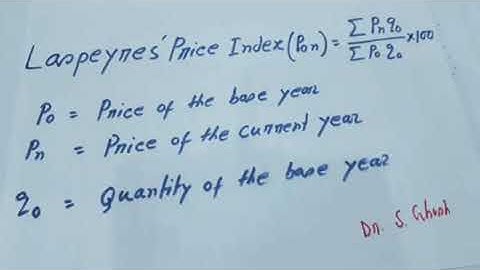 Laspeyres' Price Index (Pon) = Σ Pn q0 / Σ P0 q0 ×100
P0 = Price of the base year
Pn = Price of the current year
q0 = Quantity of the base year
Dr. S. Ghosh